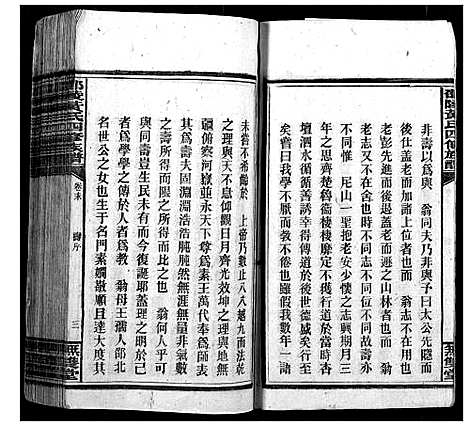 衡陽黃氏四修族譜
非壽以爲與　翁同夫乃非與子曰太公先隱而
後仕蓋老而加諸上位者也而　翁志不在用也
老彭先進而後退蓋老而遯之山林者也而　翁
老志又不在於忘世也不同志不同位不同故壽亦
不同惟　尼山一聖把老安少懷之志興期月三
年之思齊楚魯衛棲棲靡定不獲行道於當時杏
壇泗水循循善誘幸得傳道於後世德威矣行
矣嘗曰我學不厭而教不倦也雖假我數年一語
無雙堂
未嘗不希齡於　上帝乃數止八八越九而法乾
之理與天無息仰觀日月齊光效坤之理與地無
疆俯察河嶽並永天下尊爲素王萬代奉爲師表
其爲壽大固淵淵浩浩肫肫然無涯無量非氣數
之壽所得而限之也　翁何人乎可
與同壽豈生民未有而今復誕耶蓋理之明於己
者爲學學之傳於人者爲教　翁母王孺人邵北
名世公之女也生于名門素嫻散順且達大度其
卷末
壽序
三
無雙堂